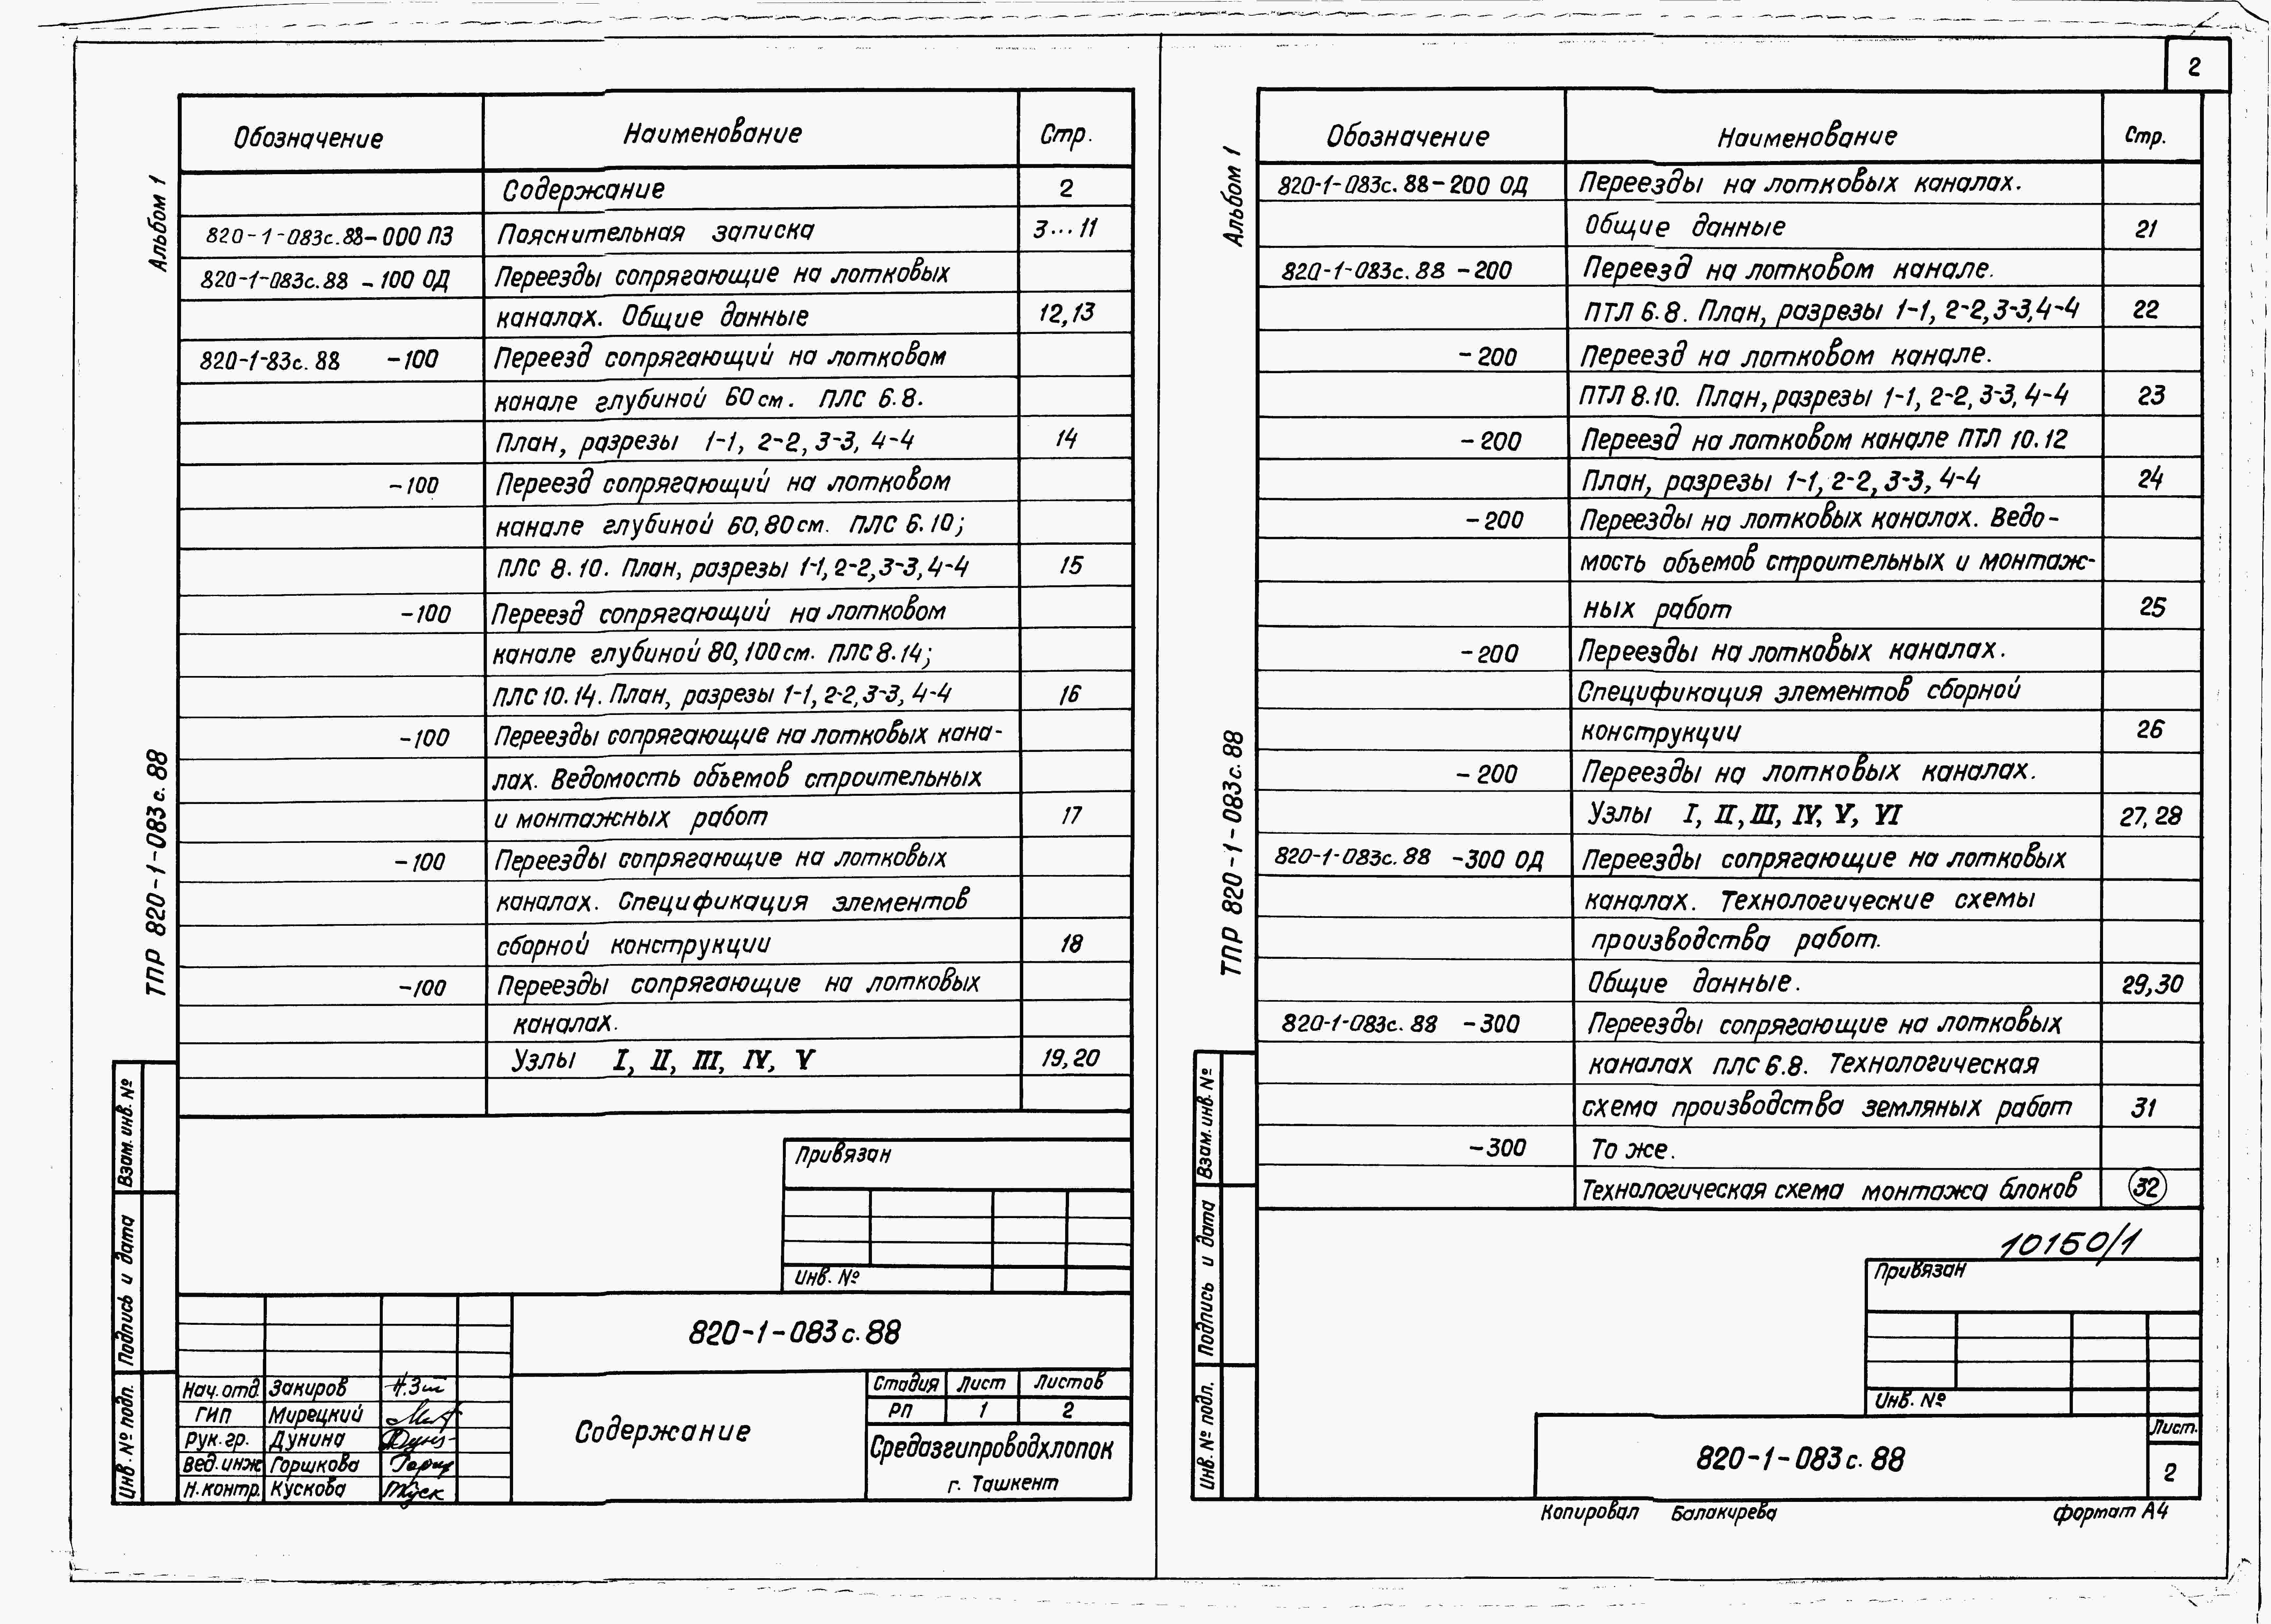 2
Альбом 1
ТПР 820-1-083 с. 88
Обозначение Наименование Стр.
Содержание 2
820-1-083с.88-000 ПЗ Пояснительная записка 3...11
820-1-083с.88 -100 ОД Переезды сопрягающие на лотковых
каналах. Общие данные 12,13
820-1-83с.88 -100 Переезд сопрягающий на лотковом
канале глубиной 60 см. ПЛС 6.8.
План, разрезы 1-1, 2-2, 3-3, 4-4 14
-100 Переезд сопрягающий на лотковом
канале глубиной 60, 80 см. ПЛС 6.10;
ПЛС 8.10. План, разрезы 1-1, 2-2, 3-3, 4-4 15
-100 Переезд сопрягающий на лотковом
канале глубиной 80, 100 см. ПЛС 8.14;
ПЛС 10.14. План, разрезы 1-1, 2-2, 3-3, 4-4 16
-100 Переезды сопрягающие на лотковых кана-
лах. Ведомость объемов строительных
и монтажных работ 17
-100 Переезды сопрягающие на лотковых
каналах. Спецификация элементов
сборной конструкции 18
-100 Переезды сопрягающие на лотковых
каналах.
Узлы I, II, III, IV, V 19,20
Привязан
Инв. №
Взам. инв. №
Подпись и дата
Инв. № подл.
820-1-083 с. 88
Нач. отд. Закиров
ГИП Мирецкий
Рук. гр. Дунина
Вед. инж. Горшкова
Н. контр. Кускова
Содержание
Стадия Лист Листов
РП 1 2
Средазгипроводхлопок
г. Ташкент
Альбом 1
ТПР 820-1-083 с. 88
Обозначение Наименование Стр.
820-1-083с. 88-200 ОД Переезды на лотковых каналах.
Общие данные 21
820-1-083с. 88 -200 Переезд на лотковом канале.
ПТЛ 6.8. План, разрезы 1-1, 2-2, 3-3, 4-4 22
-200 Переезд на лотковом канале.
ПТЛ 8.10. План, разрезы 1-1, 2-2, 3-3, 4-4 23
-200 Переезд на лотковом канале ПТЛ 10.12
План, разрезы 1-1, 2-2, 3-3, 4-4 24
-200 Переезды на лотковых каналах. Ведо-
мость объемов строительных и монтаж-
ных работ 25
-200 Переезды на лотковых каналах.
Спецификация элементов сборной
конструкции 26
-200 Переезды на лотковых каналах.
Узлы I, II, III, IV, V, VI 27, 28
820-1-083с. 88 -300 ОД Переезды сопрягающие на лотковых
каналах. Технологические схемы
производства работ.
Общие данные. 29,30
820-1-083с. 88 -300 Переезды сопрягающие на лотковых
каналах ПЛС 6.8. Технологическая
схема производства земляных работ 31
-300 То же.
Технологическая схема монтажа блоков 32
10150/1
Привязан
Инв. №
Взам. инв. №
Подпись и дата
Инв. № подл.
820-1-083 с. 88
Лист.
2
Копировал Балакирева формат А4